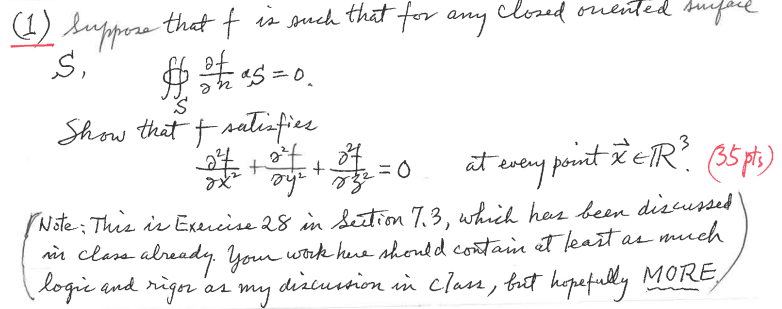 (1) Suppose that f is such that for any closed oriented surface
S, ∯_S ∂f/∂n dS = 0.
Show that f satisfies
∂²f/∂x² + ∂²f/∂y² + ∂²f/∂z² = 0 at every point x⃗ ∈ ℝ³. (35 pts)
(Note: This is Exercise 28 in Section 7.3, which has been discussed
in class already. Your work here should contain at least as much
logic and rigor as my discussion in class, but hopefully MORE.)